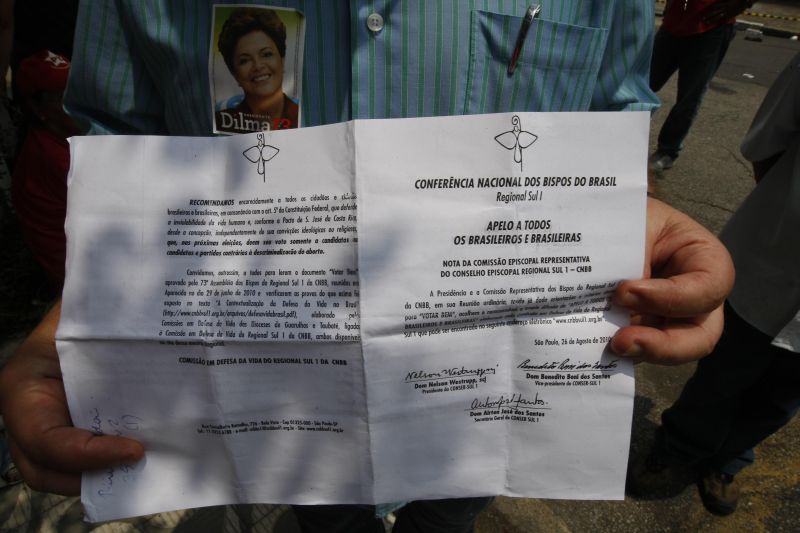 PRESIDENTE
Dilma 13
RECOMENDAMOS encarecidamente a todos os cidadãos e
brasileiros e brasileiras, em consonância com o art. 5º da Constituição Federal, que defende
a inviolabilidade da vida humana e, conforme o Pacto de S. José da Costa Rica,
desde a concepção, independentemente de suas convicções ideológicas ou religiosas,
que, nas próximas eleições, deem seu voto somente a candidatos ou
candidatas e partidos contrários à descriminalização do aborto.
Convidamos, outrossim, a todos para lerem o documento "Votar Bem"
aprovado pela 73ª Assembléia dos Bispos do Regional Sul 1 da CNBB, reunidos em
Aparecida no dia 29 de junho de 2010 e verificarem as provas do que acima foi
exposto no texto "A Contextualização da Defesa da Vida no Brasil"
elaborado pelas
Comissões em Defesa da Vida das Dioceses de Guarulhos e Taubaté, ligadas
à Comissão em Defesa da Vida do Regional Sul 1 da CNBB, ambos disponíveis
COMISSÃO EM DEFESA DA VIDA DO REGIONAL SUL 1 DA CNBB
CONFERÊNCIA NACIONAL DOS BISPOS DO BRASIL
Regional Sul 1
APELO A TODOS
OS BRASILEIROS E BRASILEIRAS
NOTA DA COMISSÃO EPISCOPAL REPRESENTATIVA
DO CONSELHO EPISCOPAL REGIONAL SUL 1 – CNBB
A Presidência e a Comissão Representativa dos Bispos do Regional Sul
da CNBB, em sua Reunião ordinária, tendo já dado orientações
para "VOTAR BEM", acolhem e recomendam
BRASILEIROS E BRASILEIRAS" em Defesa da Vida do Regional
Sul 1 que pode ser encontrado no seguinte endereço eletrônico "www.cnbbsul1.org.br".
São Paulo, 26 de Agosto de 2010
Nelson Westrupp, scj Benedito Beni dos Santos
Dom Nelson Westrupp, scj Dom Benedito Beni dos Santos
Presidente do CONSER-SUL 1 Vice-presidente do CONSER-SUL 1
Dom Airton José dos Santos
Secretário Geral do CONSER SUL 1